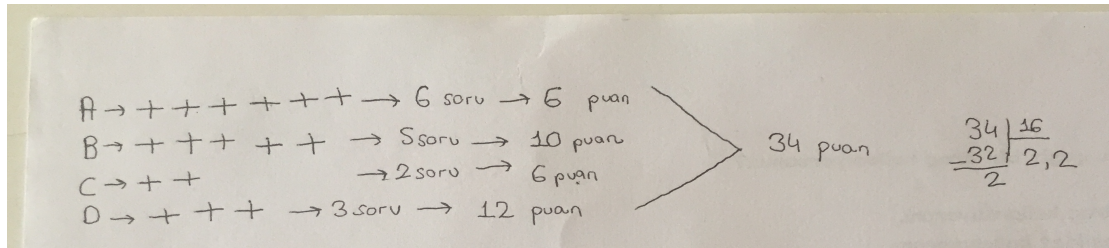 A → + + + + + + → 6 soru → 6 puan
B → + + + + + → 5 soru → 10 puan
C → + + → 2 soru → 6 puan
D → + + + → 3 soru → 12 puan
34 puan
34 | 16
-32 | 2,2
2